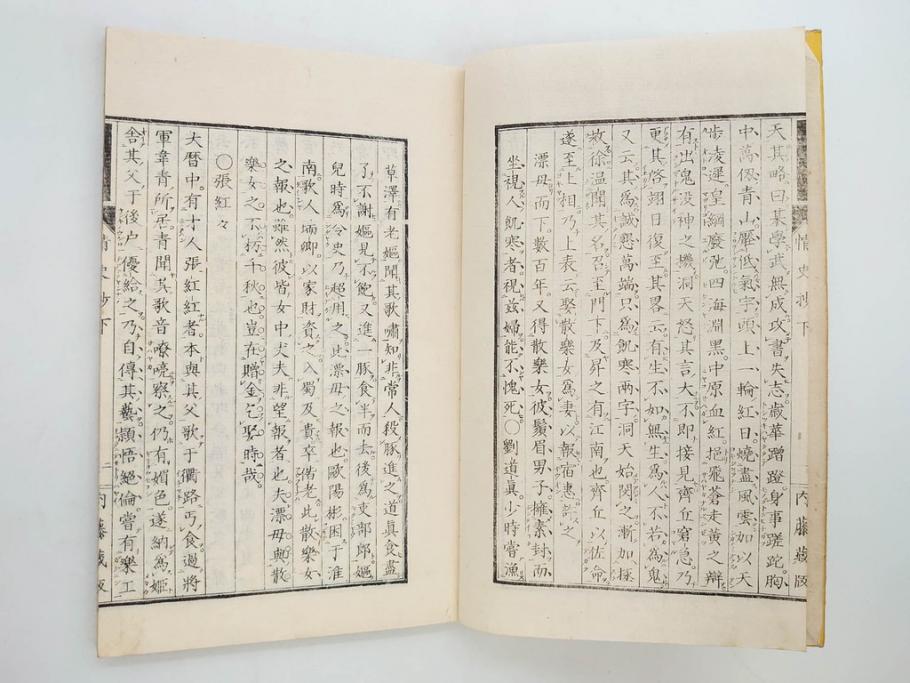 情史抄下 内藤藏版
天其略曰某學武無成攻書失志嵗華蹭蹬身事蹉跎胸
中萬仭青山壓低氣宇頭上一輪紅日燒盡風雲加以天
步凌遲皇綱廢弛四海淵黑中原血紅挹飛蒼走黄之辯
有出鬼没神之機洞天怒其言大不即接見齊丘窘急乃
更其啓翊日復至其畧云有生不如無生為人不若為鬼
又云其為誠懇萬端只為飢寒兩字洞天始閔之漸加拯
救徐温聞其名召至門下及昇之有江南也齊丘以佐命
遂至上相乃上表云娶散樂女為妻以報宿惠許之
漂母而下數百年又得散樂女彼鬚眉男子擁素封而
坐視人飢寒者視兹婦能不愧死〇劉道真少時嘗漁
草澤有老嫗聞其歌嘯知非常人殺豚進之道真食盡
了不謝嫗見不飽又進一豚食半而去後爲吏部郎嫗
兒時爲令史乃超用之此漂母之報也歐陽彬困于淮
南歌人瑞卿以家財資之入蜀及貴卒偕老此散樂女
之報也雖然彼皆女中丈夫非望報者也夫漂母與散
樂女之不朽千秋也豈在贈金乞娶時哉
〇張紅々
大暦中有才人張紅紅者本與其父歌于衢路丐食過將
軍韋青所居青聞其歌音嘹喨察之仍有媚色遂納爲姬
舍其父于後户優給之乃自傳其藝頴悟絕倫嘗有樂工
情史抄下 二 内藤藏版